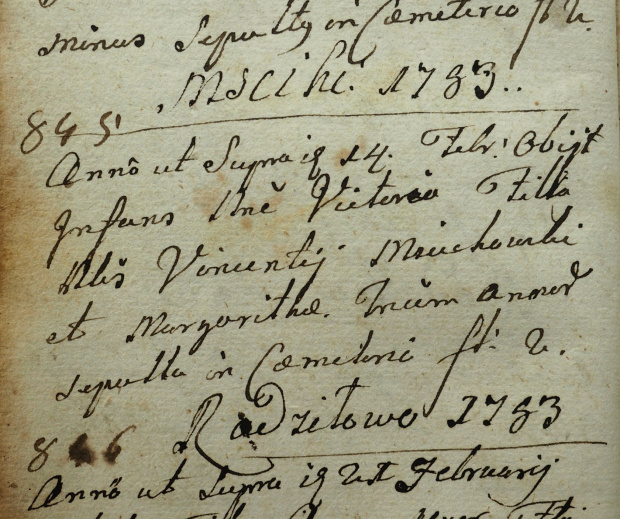 minus Sepultg in Cæmeterio st. v.
Mscihi. 1783..
845
Annô ut Supra ig 14. Febr: Obijt
Infans Nnê Victoria Filia
Nlis Vincentij Mniuchowski
et Margarithæ. Trium annorũ
sepulta in Cæmeterio st. v.
846 Radziłowo 1783
Annô ut Supra ig 21st Februarij